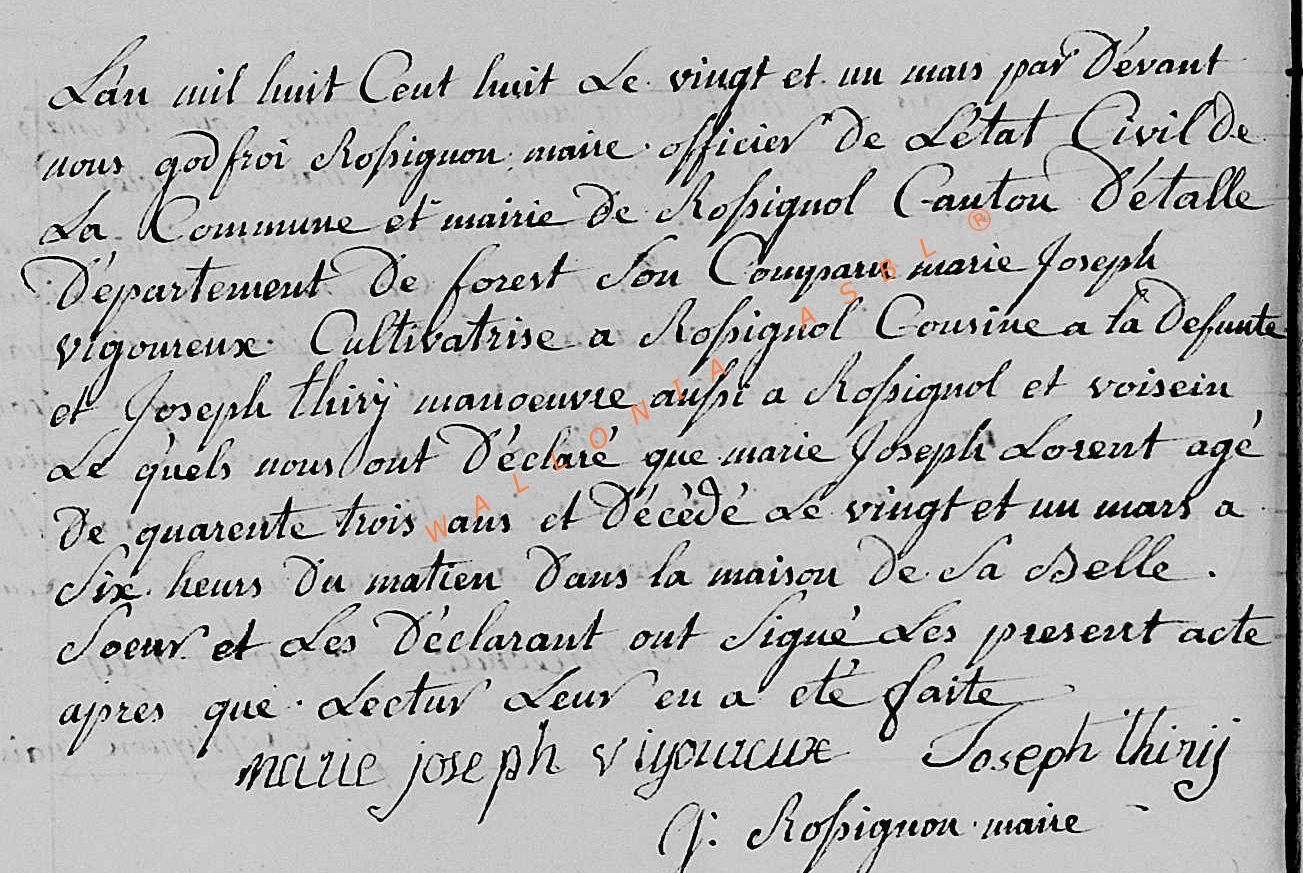 L'an mil huit Cent huit Le vingt et un mars par Dévant
nous godfroi Rossignon maire officier de L'état Civil De
La Commune et mairie de Rossignol Canton D'étalle
Département De forest Son Comparu marie Joseph
vigoureux Cultivatrise a Rossignol Cousine a la Defunte
et Joseph thirÿ manoeuvre aussi a Rossignol et voisein
Le quels nous ont Déclaré que marie Joseph Lorent agé
De quarente trois ans et Décèdé Le vingt et un mars a
Six heurs Du matien Dans la maison De Sa Belle
Soeur et Les Déclarant ont Signé Les present acte
apres que Lectur Leur en a eté faite
marie joseph vigouraux Joseph thirij
G: Rossignon maire
WALLONIA ASBL ®